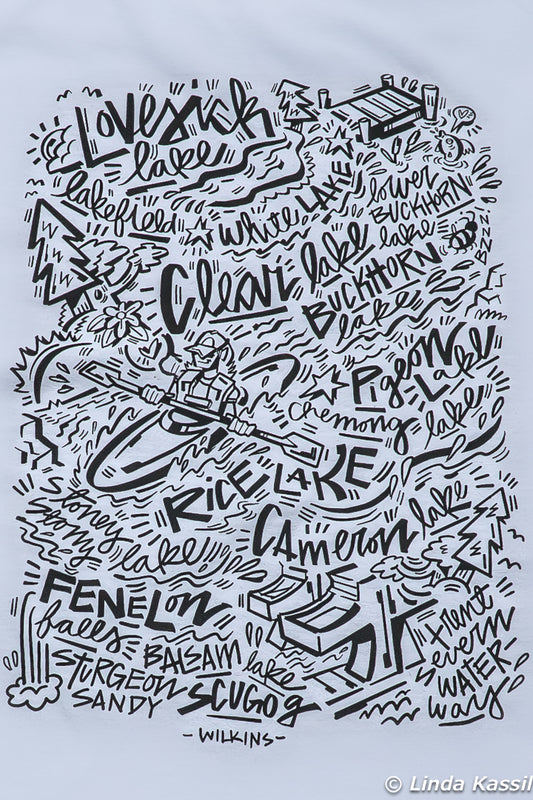 Lovesick
lake
lakefield
White LAKE
lower
BUCKHORN
lake
BZZZ
Clear lake
BUCKHORN
lake
Pigeon
Lake
Chemong lake
RICE LAKE
Stoney
Stony lake!!!
Cameron lake
FENELON
falls
STURGEON
SANDY
BALSAM lake
SCUGOg
trent
severn
WATER-
way
-WILKINS-
© Linda Kassil